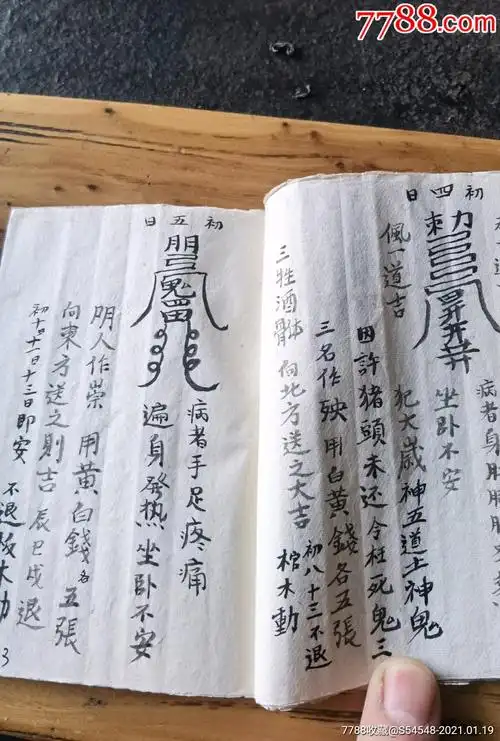 7788.com
初四日
勅
病者身
坐卧不安
犯大歲神五道土神鬼
佩一道吉
因許猪頭未还今枉死鬼三
三名作殃用白黄錢各五張
初八十三不退
三牲酒醴向北方送之大吉
棺木動
初五日
鬼
病者手足疼痛
遍身發热坐卧不安
朋人作祟用黄白錢各五張
向東方送之則吉辰巳戌退
初十十一日十三日即安不退板木动
3
7788收藏@S54548-2021.01.19